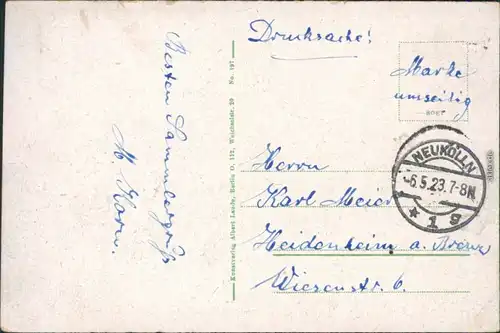 Drucksache!
Marke
umseitig
POST
Besten Sammlergruß
M. Horn.
Kunstverlag Albert Laude, Berlin O. 112, Weichselstr. 29 No. 197
NEUKÖLLN
-6.5.23.7-8N.
* 1 g
Herrn
Karl Meier
Heidenheim a. Brenz
Wiesenstr. 6.